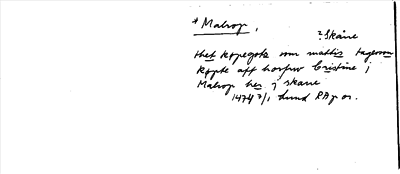 * Malrop,
? Skåne
thet köpegotz om mattis tageson
köpte aff horfru Cristine j
Malrop her j skane
1474 7/1 Lund RAp or.